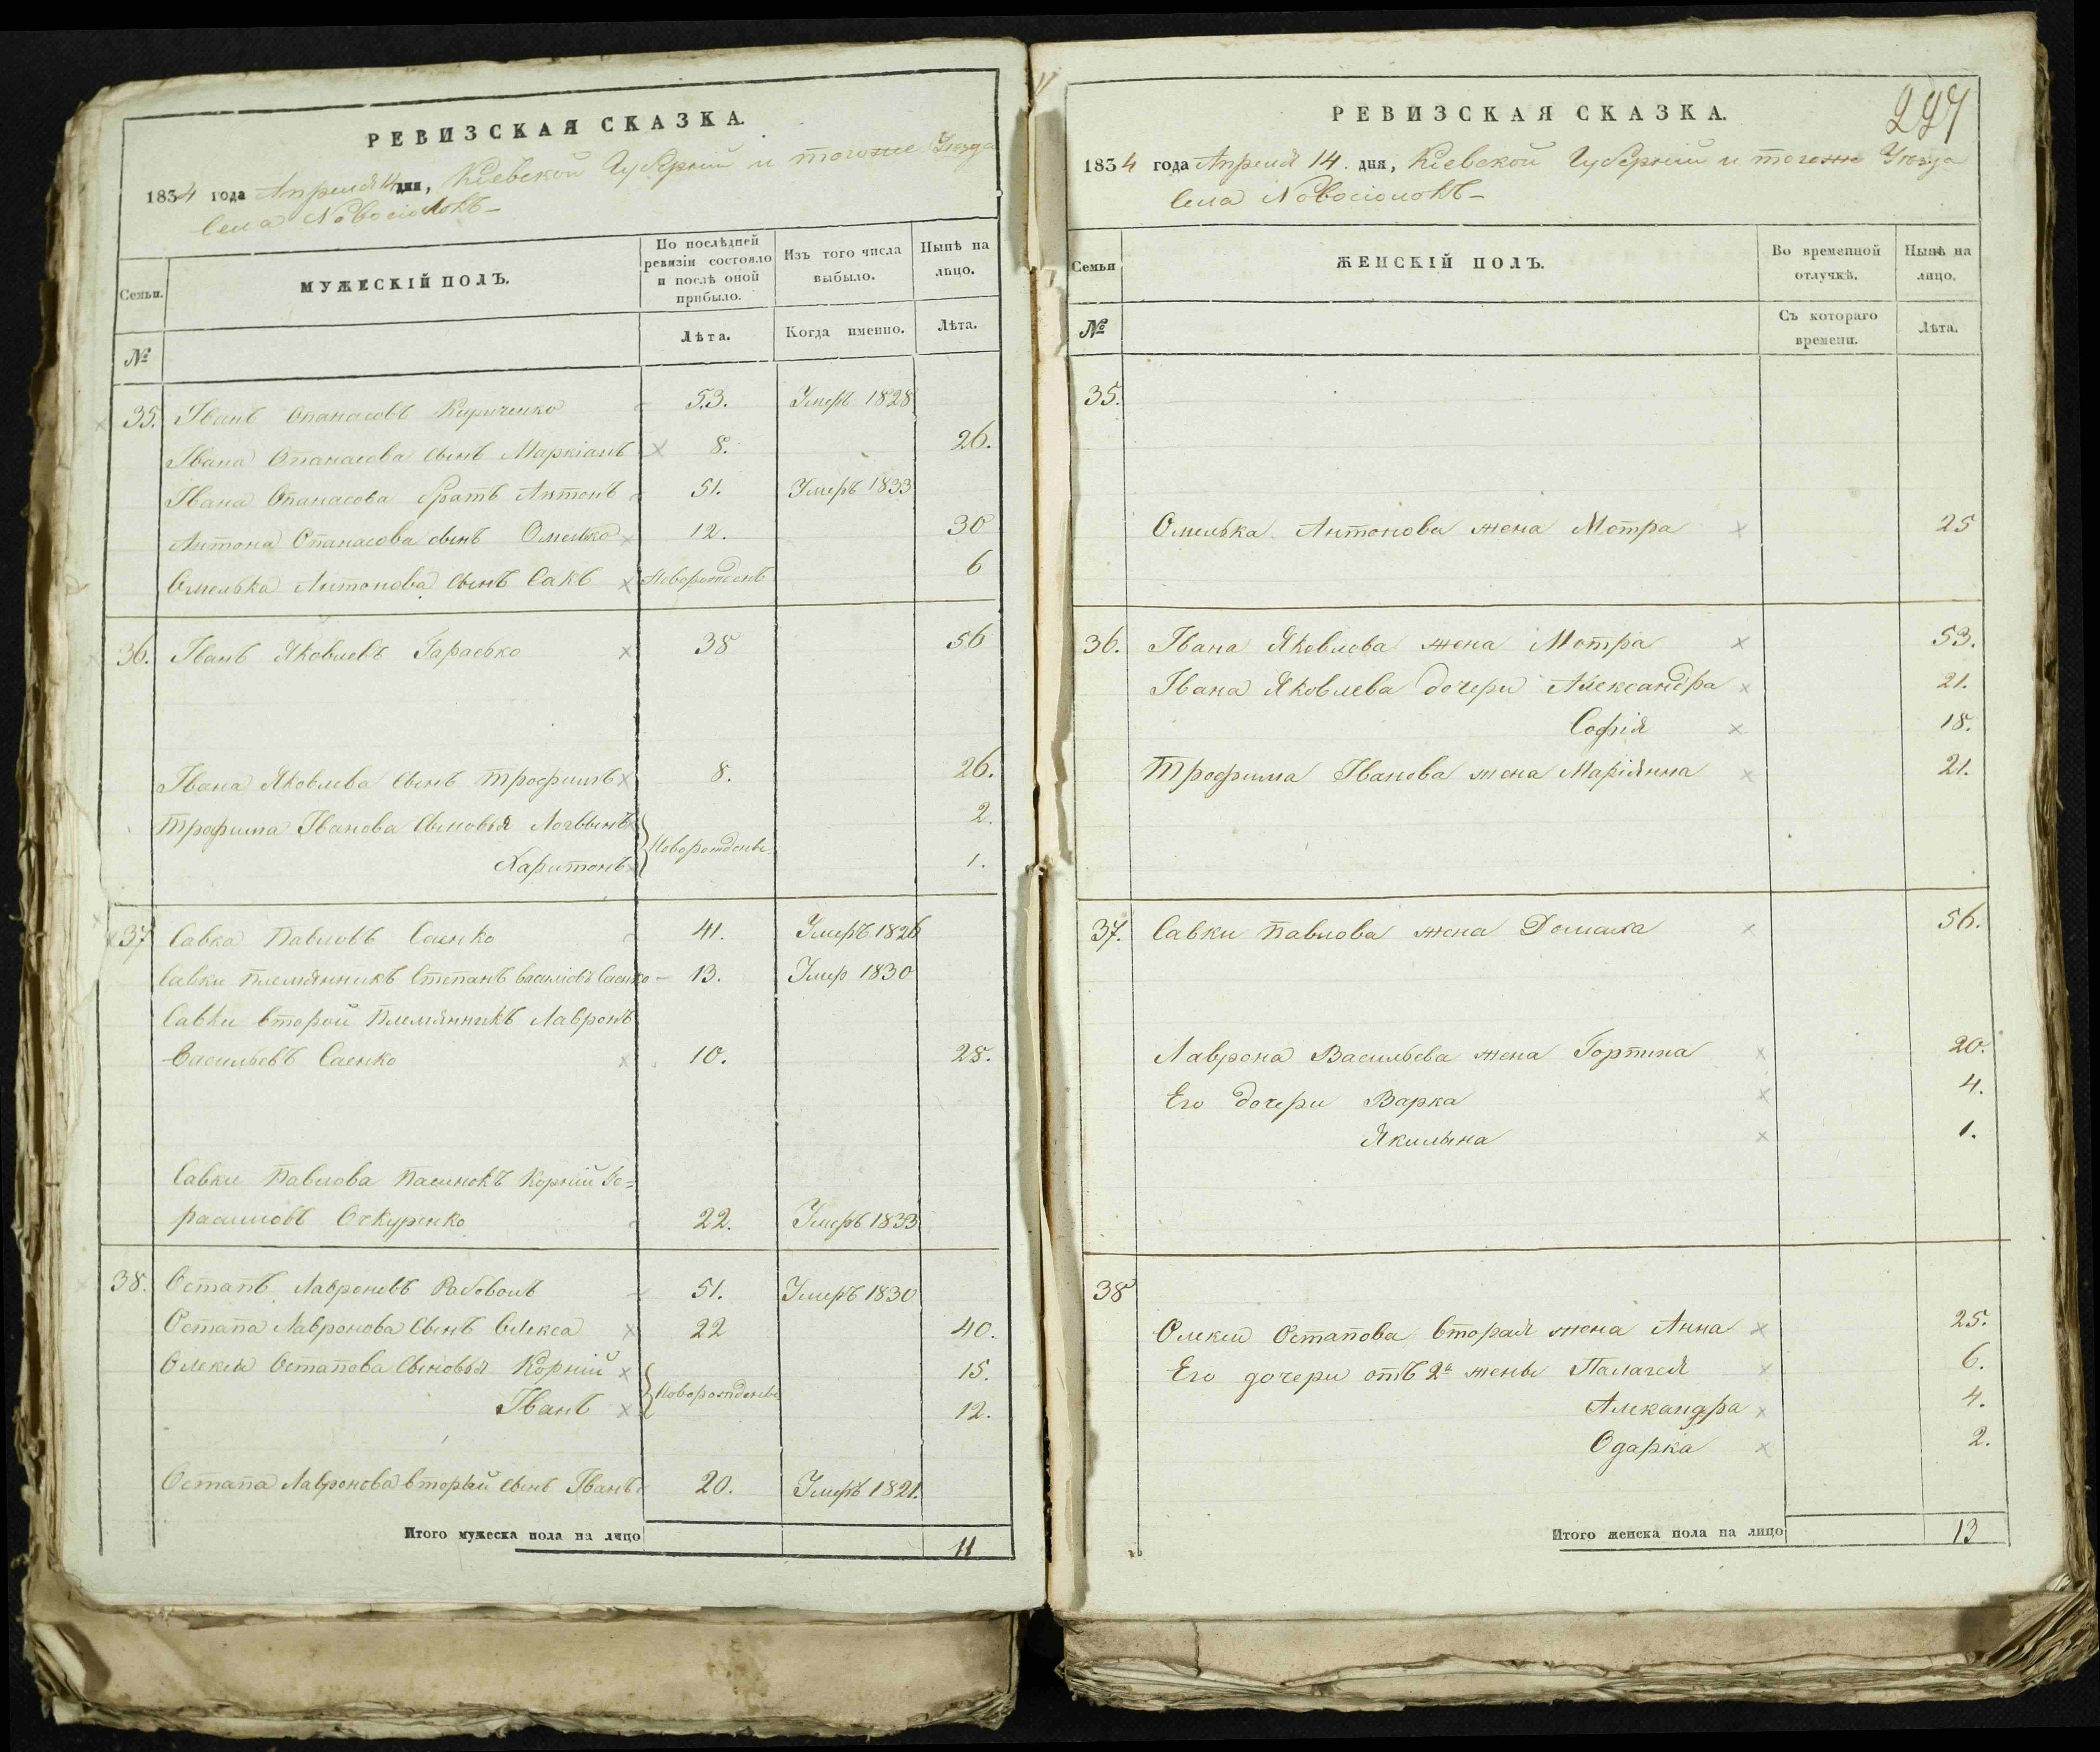 РЕВИЗСКАЯ СКАЗКА.
1834 года Апреля 14 дня, Кіевской Губерніи и тогоже Уезда
Села Новосіолокъ
Семьи.
МУЖЕСКІЙ ПОЛЪ.
По послѣдней ревизіи состояло и послѣ оной прибыло.
Изъ того числа выбыло.
Нынѣ на лицо.
№
Лѣта.
Когда именно.
Лѣта.
35. Іванъ Опанасовъ Кириченко 53. Умеръ 1828
Івана Опанасова сынъ Маркіанъ 8. 26.
Івана Опанасова братъ Антонъ 51. Умеръ 1833
Антона Опанасова сынъ Омелько 12. 30
Омелька Антонова сынъ Сакъ Новорожденъ 6
36. Іванъ Яковлевъ Гарасько 38 56
Івана Яковлева сынъ Трофимъ 8. 26.
Трофима Іванова сыновья Логвынъ 2.
Новорожденые
Харитонъ 1.
37 Савка Павловъ Саенко 41. Умеръ 1826
Савки племянникъ Степанъ Васильевъ Саенко 13. Умер 1830
Савки второй племянникъ Лавронъ
Васильевъ Саенко 10. 28.
Савки Павлова пасинокъ Корній Ге=
расимовъ Очкуренко 22. Умеръ 1833
38. Остапъ Лавроновъ Рабоволъ 51. Умеръ 1830
Остапа Лавронова сынъ Олекса 22 40.
Олексы Остапова сыновья Корній 15.
Новорожденые
Іванъ 12.
Остапа Лавронова вторый сынъ Іванъ 20. Умеръ 1821.
Итого мужеска пола на лицо 11
227
РЕВИЗСКАЯ СКАЗКА.
1834 года Апреля 14. дня, Кіевской Губерніи и тогоже Уезда
Села Новосіолокъ
Семьи
ЖЕНСКІЙ ПОЛЪ.
Во временной отлучкѣ.
Нынѣ на лицо.
№
Съ котораго времени.
Лѣта.
35.
Омелька Антонова жена Мотра 25
36. Івана Яковлева жена Мотра 53.
Івана Яковлева дочери Александра 21.
Софія 18.
Трофима Іванова жена Маріянна 21.
37. Савки Павлова жена Домаха 56.
Лаврона Васильева жена Горпина 20.
Его дочери Варка 4.
Якилына 1.
38
Олексы Остапова вторая жена Анна 25.
Его дочери отъ 2й жены Палагея 6.
Алекандра 4.
Одарка 2.
Итого женска пола на лицо 13